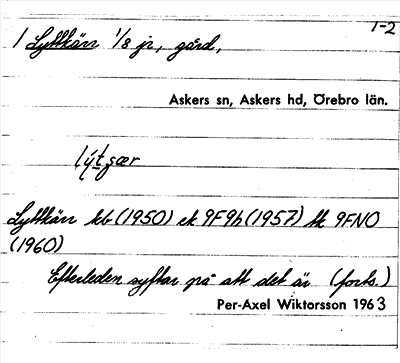 1-2
1 Lyttkärr 1/8 jr, gård,
Askers sn, Askers hd, Örebro län.
lýtɟær
Lyttkärr kb (1950) ek 9F9h (1957) tk 9FNO
(1960)
Efterleden syftar på att det är (forts.)
Per-Axel Wiktorsson 1963